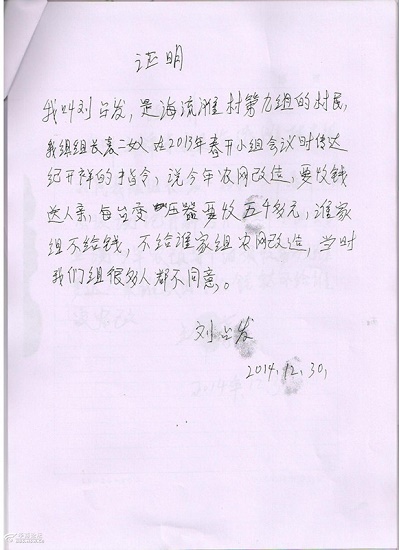 证明
我叫刘占发，是海流滩村第九组的村民，
我组组长袁二奴在2013年春开小组会议时传达
纪开祥的指令，说今年农网改造，要收钱
送人亲，每台变压器要收五千多元，谁家
组不给钱，不给谁家组农网改造，当时
我们组很多人都不同意。
刘占发
2014.12.30.